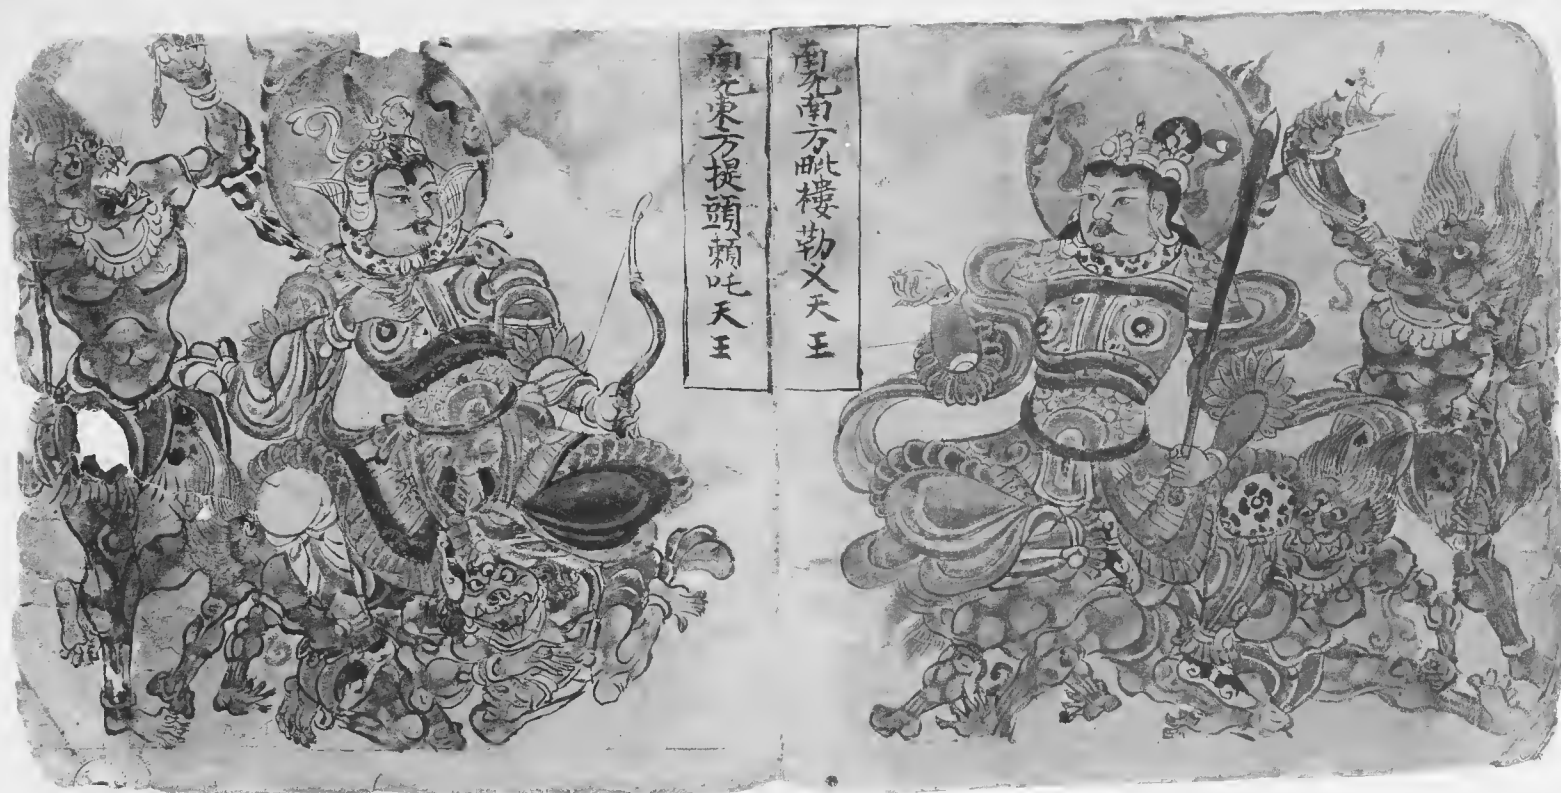 南无南方毗楼勒叉天王
南无東方提頭頼吒天王